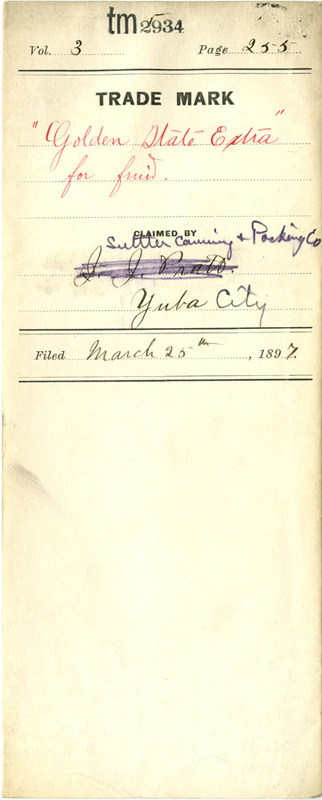 tm 2934
Vol. 3 Page 255
TRADE MARK
"Golden State Extra"
for fruit.
CLAIMED BY
Sutter Canning & Packing Co
J. J. Pratt.
Yuba City
Filed March 25th, 1897.